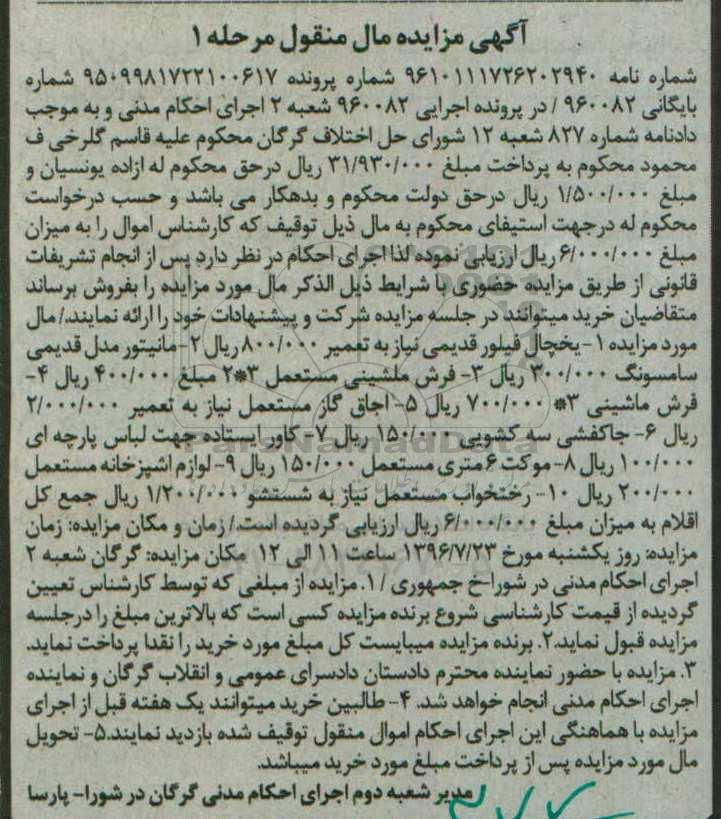 آگهی مزایده مال منقول مرحله ۱
شماره نامه ۹۶۱۰۱۱۱۷۲۶۲۰۲۹۴۰ شماره پرونده ۹۵۰۹۹۸۱۷۲۲۱۰۰۶۱۷ شماره
بایگانی ۹۶۰۰۸۲ / در پرونده اجرایی ۹۶۰۰۸۲ شعبه ۲ اجرای احکام مدنی و به موجب
دادنامه شماره ۸۲۷ شعبه ۱۲ شورای حل اختلاف گرگان محکوم علیه قاسم گلرخی ف
محمود محکوم به پرداخت مبلغ ۳۱/۹۳۰/۰۰۰ ریال درحق محکوم له ازاده یونسیان و
مبلغ ۱/۵۰۰/۰۰۰ ریال درحق دولت محکوم و بدهکار می باشد و حسب درخواست
محکوم له درجهت استیفای محکوم به مال ذیل توقیف که کارشناس اموال را به میزان
مبلغ ۶/۰۰۰/۰۰۰ ریال ارزیابی نموده لذا اجرای احکام در نظر دارد پس از انجام تشریفات
قانونی از طریق مزایده حضوری با شرایط ذیل الذکر مال مورد مزایده را بفروش برساند
متقاضیان خرید میتوانند در جلسه مزایده شرکت و پیشنهادات خود را ارائه نمایند./ مال
مورد مزایده ۱- یخچال فیلور قدیمی نیاز به تعمیر ۸۰۰/۰۰۰ ریال ۲- مانیتور مدل قدیمی
سامسونگ ۳۰۰/۰۰۰ ریال ۳- فرش ملشینی مستعمل ۳*۲ مبلغ ۴۰۰/۰۰۰ ریال ۴-
فرش ماشینی ۳* ۷۰۰/۰۰۰ ریال ۵- اجاق گاز مستعمل نیاز به تعمیر ۲/۰۰۰/۰۰۰
ریال ۶- جاکفشی سه کشویی ۱۵۰/۰۰۰ ریال ۷- کاور ایستاده جهت لباس پارچه ای
۱۰۰/۰۰۰ ریال ۸- موکت ۶ متری مستعمل ۱۵۰/۰۰۰ ریال ۹- لوازم اشپزخانه مستعمل
۲۰۰/۰۰۰ ریال ۱۰- رختخواب مستعمل نیاز به شستشو ۱/۲۰۰/۰۰۰ ریال جمع کل
اقلام به میزان مبلغ ۶/۰۰۰/۰۰۰ ریال ارزیابی گردیده است./ زمان و مکان مزایده: زمان
مزایده: روز یکشنبه مورخ ۱۳۹۶/۷/۲۳ ساعت ۱۱ الی ۱۲ مکان مزایده: گرگان شعبه ۲
اجرای احکام مدنی در شورا-خ جمهوری / ۱. مزایده از مبلغی که توسط کارشناس تعیین
گردیده از قیمت کارشناسی شروع برنده مزایده کسی است که بالاترین مبلغ را درجلسه
مزایده قبول نماید.۲. برنده مزایده میبایست کل مبلغ مورد خرید را نقدا پرداخت نماید.
۳. مزایده با حضور نماینده محترم دادستان دادسرای عمومی و انقلاب گرگان و نماینده
اجرای احکام مدنی انجام خواهد شد. ۴- طالبین خرید میتوانند یک هفته قبل از اجرای
مزایده با هماهنگی این اجرای احکام اموال منقول توقیف شده بازدید نمایند.۵- تحویل
مال مورد مزایده پس از پرداخت مبلغ مورد خرید میباشد.
مدیر شعبه دوم اجرای احکام مدنی گرگان در شورا- پارسا
ParsNamadData